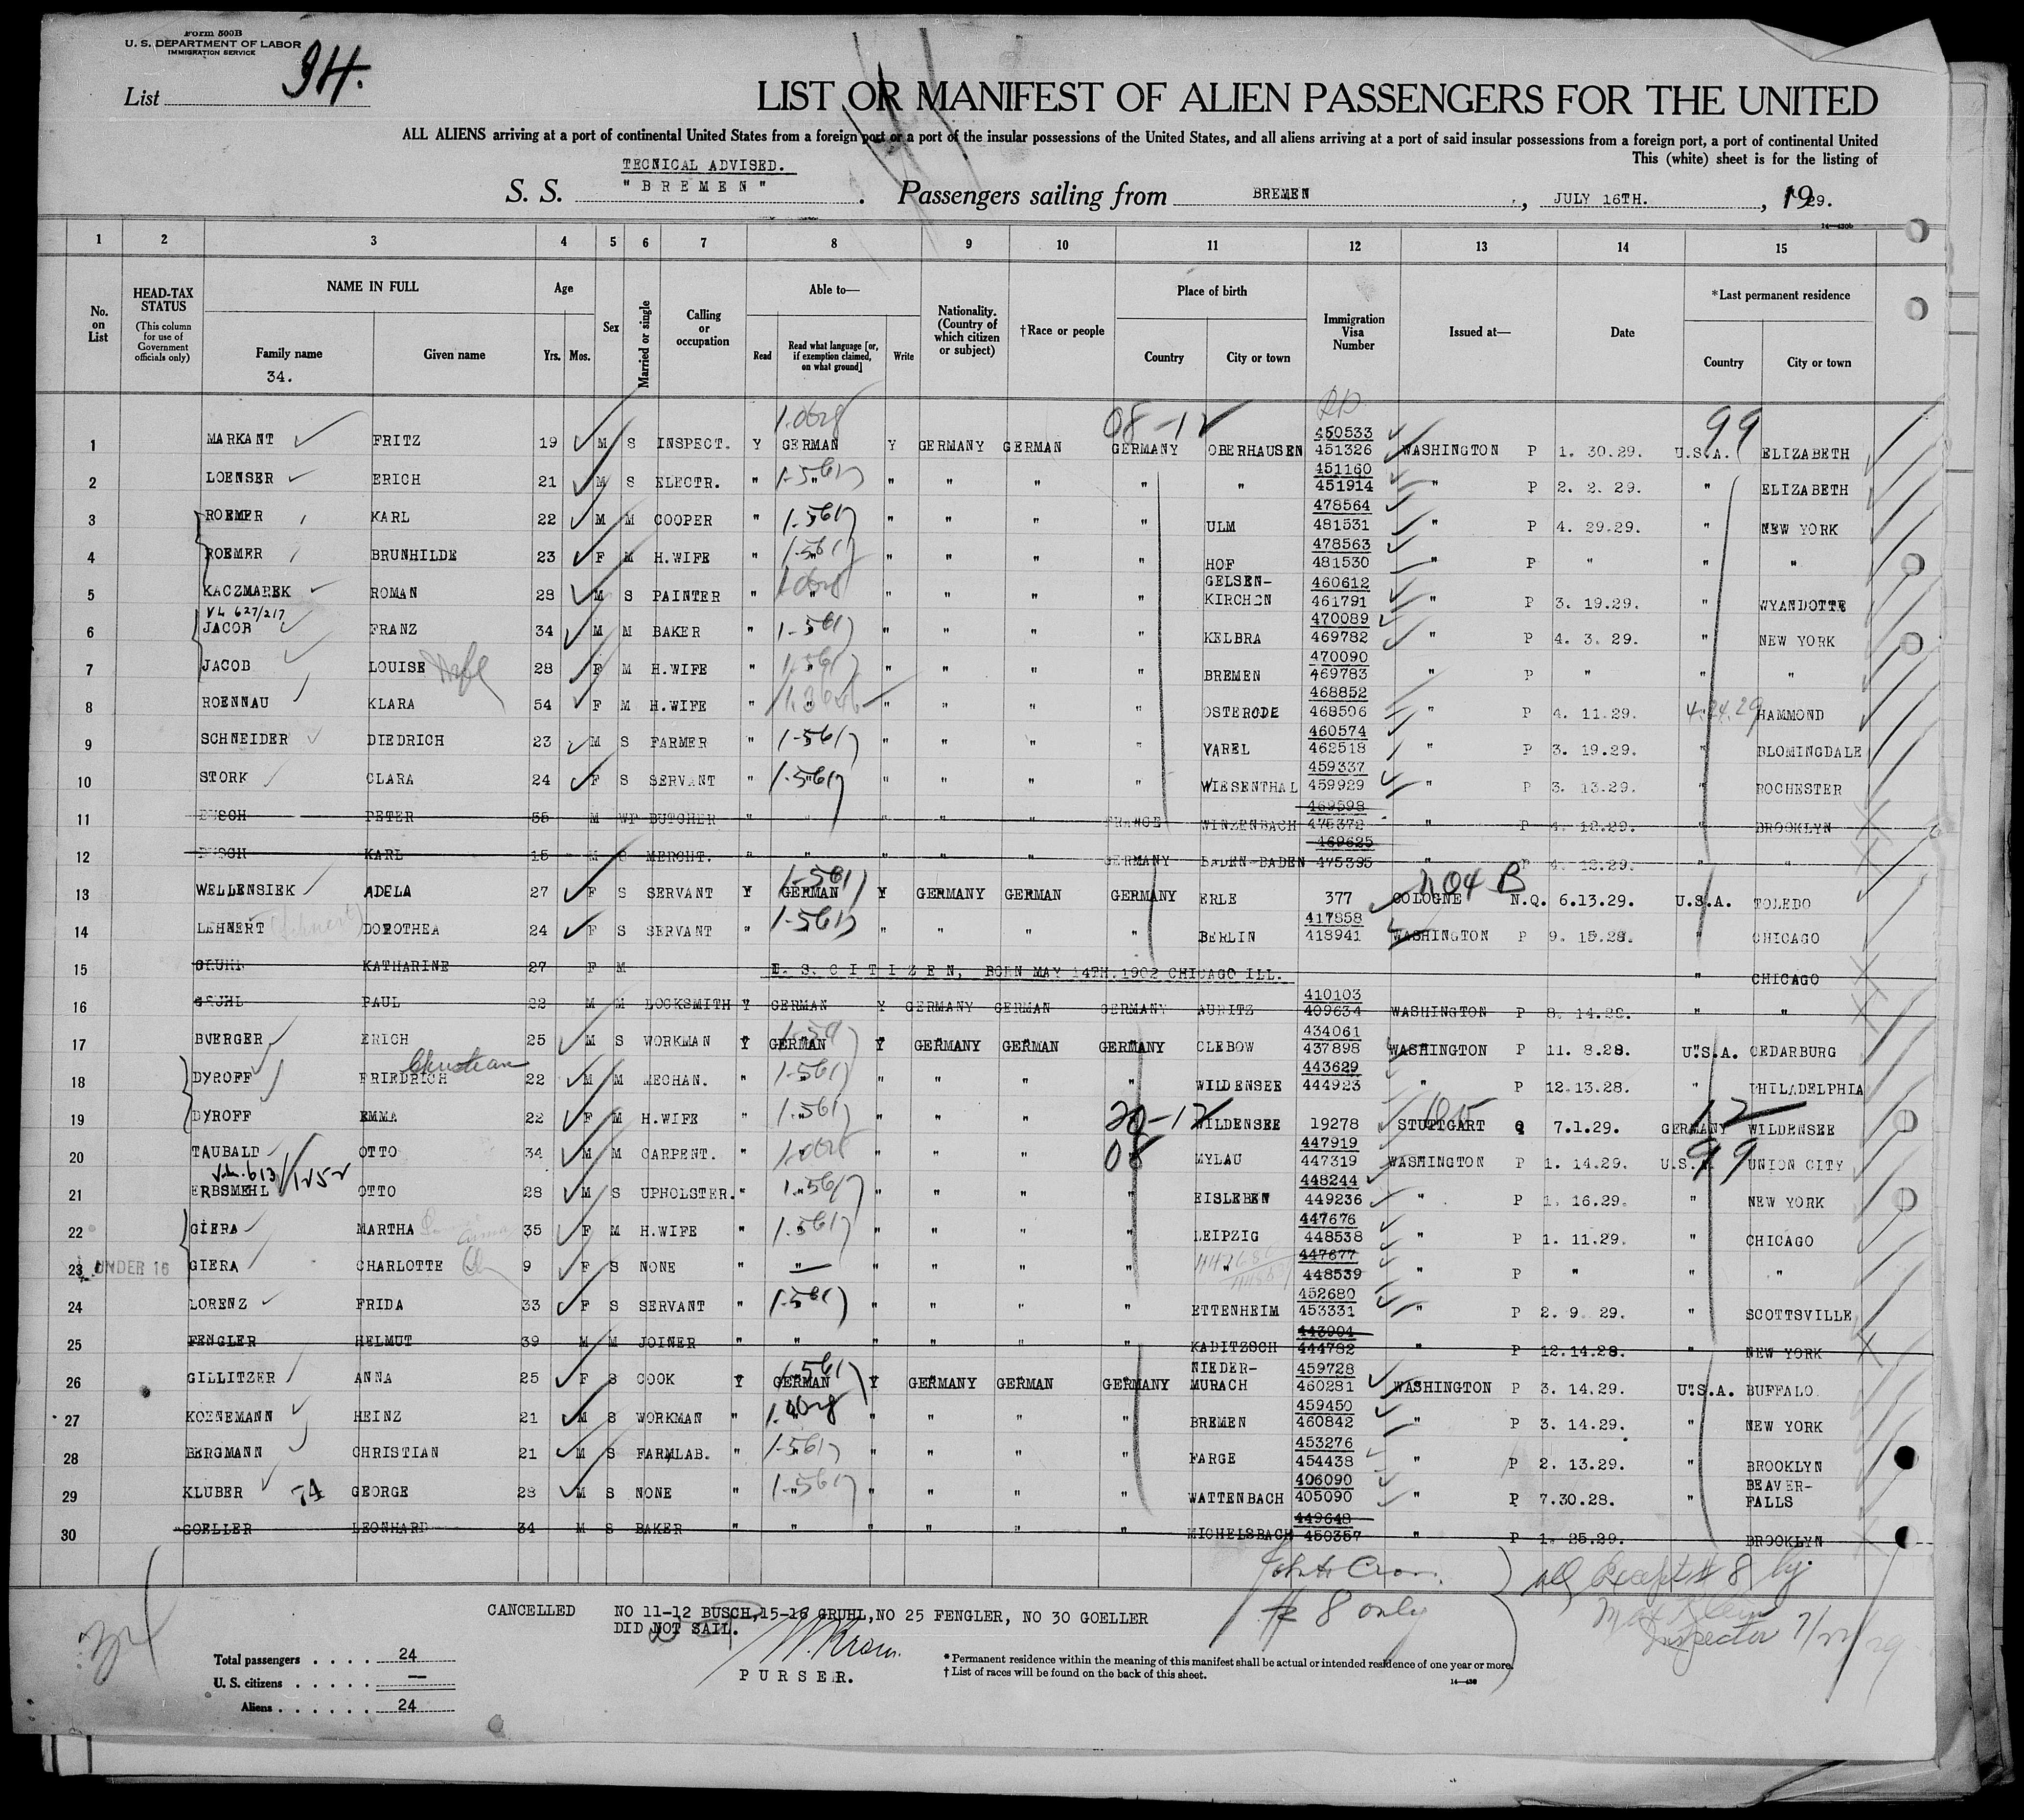 Form 500B
U. S. DEPARTMENT OF LABOR
IMMIGRATION SERVICE
List 34.
LIST OR MANIFEST OF ALIEN PASSENGERS FOR THE UNITED
ALL ALIENS arriving at a port of continental United States from a foreign port or a port of the insular possessions of the United States, and all aliens arriving at a port of said insular possessions from a foreign port, a port of continental United
This (white) sheet is for the listing of
TECNICAL ADVISED.
S. S. "BREMEN". Passengers sailing from BREMEN, JULY 16TH., 1929.
14—430b
1 2 3 4 5 6 7 8 9 10 11 12 13 14 15
No. on List
HEAD-TAX STATUS (This column for use of Government officials only)
NAME IN FULL
Family name
Given name
34.
Age
Yrs. Mos.
Sex
Married or single
Calling or occupation
Able to—
Read
Read what language [or, if exemption claimed, on what ground]
Write
Nationality. (Country of which citizen or subject)
†Race or people
Place of birth
Country
City or town
Immigration Visa Number
Issued at—
Date
*Last permanent residence
Country
City or town
08-12 99
1 MARKANT FRITZ 19 M S INSPECT. Y GERMAN Y GERMANY GERMAN GERMANY OBERHAUSEN 450533 451326 WASHINGTON P 1. 30.29. U.S.A. ELIZABETH
2 LOENSER ERICH 21 M S ELECTR. " " " " " " " 451160 451914 " P 2. 2. 29. " ELIZABETH
3 ROEMER KARL 22 M M COOPER " " " " " " ULM 478564 481531 " P 4. 29.29. " NEW YORK
4 ROEMER BRUNHILDE 23 F M H.WIFE " " " " " " HOF 478563 481530 " P " " "
5 KACZMAREK ROMAN 28 M S PAINTER " " " " " " GELSEN-KIRCHEN 460612 461791 " P 3. 19.29. " WYANDOTTE
VL 627/217
6 JACOB FRANZ 34 M M BAKER " " " " " " KELBRA 470089 469782 " P 4. 3. 29. " NEW YORK
7 JACOB LOUISE Wife 28 F M H.WIFE " " " " " " BREMEN 470090 469783 " P " " "
8 ROENNAU KLARA 54 F M H.WIFE " " " " " " OSTERODE 468852 468506 " P 4. 11.29. 4.24.29 HAMMOND
9 SCHNEIDER DIEDRICH 23 M S FARMER " " " " " " VAREL 460574 462518 " P 3. 19.29. " BLOMINGDALE
10 STORK CLARA 24 F S SERVANT " " " " " " WIESENTHAL 459337 459929 " P 3. 13.29. " ROCHESTER
11 BUSCH PETER 55 M WD BUTCHER " " " " " FRANCE WINZENBACH 469598 475372 " P 4. 12.29. " BROOKLYN
12 BUSCH KARL 15 M S MERCHT. " " " " " GERMANY BADEN-BADEN 469625 475395 " P 4. 12.29. " "
13 WELLENSIEK ADELA 27 F S SERVANT Y GERMAN Y GERMANY GERMAN GERMANY ERLE 377 COLOGNE N.Q. 6.13.29. U.S.A. TOLEDO
14 LEHNERT (Lehnert) DOROTHEA 24 F S SERVANT " " " " " " BERLIN 417858 418941 WASHINGTON P 9. 15.28. " CHICAGO
15 GRUHL KATHARINE 27 F M U. S. C I T I Z E N, BORN MAY 14TH.1902 CHICAGO ILL. " CHICAGO
16 GRUHL PAUL 22 M M LOCKSMITH Y GERMAN Y GERMANY GERMAN GERMANY AURITZ 410103 409634 WASHINGTON P 8. 14.28. " "
17 BUERGER ERICH 25 M S WORKMAN Y GERMAN Y GERMANY GERMAN GERMANY CLEBOW 434061 437898 WASHINGTON P 11. 8.28. U.S.A. CEDARBURG
18 DYROFF FRIEDRICH Christian 22 M M MECHAN. " " " " " " WILDENSEE 443629 444923 " P 12.13.28. " PHILADELPHIA
19 DYROFF EMMA 22 F M H.WIFE " " " " " 20-12 WILDENSEE 19278 STUTTGART Q 7.1.29. GERMANY 12 WILDENSEE
20 TAUBALD OTTO 34 M M CARPENT. " " " " " 08 MYLAU 447919 447319 WASHINGTON P 1. 14.29. U.S.A. 99 UNION CITY
21 ERBSMEHL OTTO 28 M S UPHOLSTER. " " " " " " EISLEBEN 448244 449236 " P 1. 16.29. " NEW YORK
22 GIERA MARTHA 35 F M H.WIFE " " " " " " LEIPZIG 447676 448538 " P 1. 11.29. " CHICAGO
23 UNDER 16 GIERA CHARLOTTE 9 F S NONE " — " " " " " 447677 448539 " P " " "
24 LORENZ FRIDA 33 F S SERVANT " " " " " ETTENHEIM 452680 453331 " P 2. 9. 29. " SCOTTSVILLE
25 FENGLER HELMUT 39 M M JOINER " " " " " " KADITZSCH 443904 444782 " P 12.14.28. " NEW YORK
26 GILLITZER ANNA 25 F S COOK Y GERMAN Y GERMANY GERMAN GERMANY NIEDER-MURACH 459728 460281 WASHINGTON P 3. 14.29. U.S.A. BUFFALO
27 KOENEMANN HEINZ 21 M S WORKMAN " " " " " " BREMEN 459450 460842 " P 3. 14.29. " NEW YORK
28 BERGMANN CHRISTIAN 21 M S FARMLAB. " " " " " " FARGE 453276 454438 " P 2. 13.29. " BROOKLYN
29 KLUBER 74 GEORGE 28 M S NONE " " " " " " WATTENBACH 406090 405090 " P 7.30.28. " BEAVER-FALLS
30 GOELLER LEONHARD 34 M S BAKER " " " " " " MICHELSBACH 449648 450357 " P 1. 25.29. " BROOKLYN
# 8 only
all except # 8 by
Inspector 7/22/29
CANCELLED NO 11-12 BUSCH,15-16 GRUHL,NO 25 FENGLER, NO 30 GOELLER
DID NOT SAIL.
PURSER.
Total passengers . . . . 24
U. S. citizens . . . . . . —
Aliens . . . . . . . 24
* Permanent residence within the meaning of this manifest shall be actual or intended residence of one year or more.
† List of races will be found on the back of this sheet.
14—430